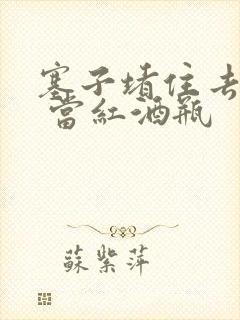 塞子堵住去
當紅酒瓶
蘇紫萍